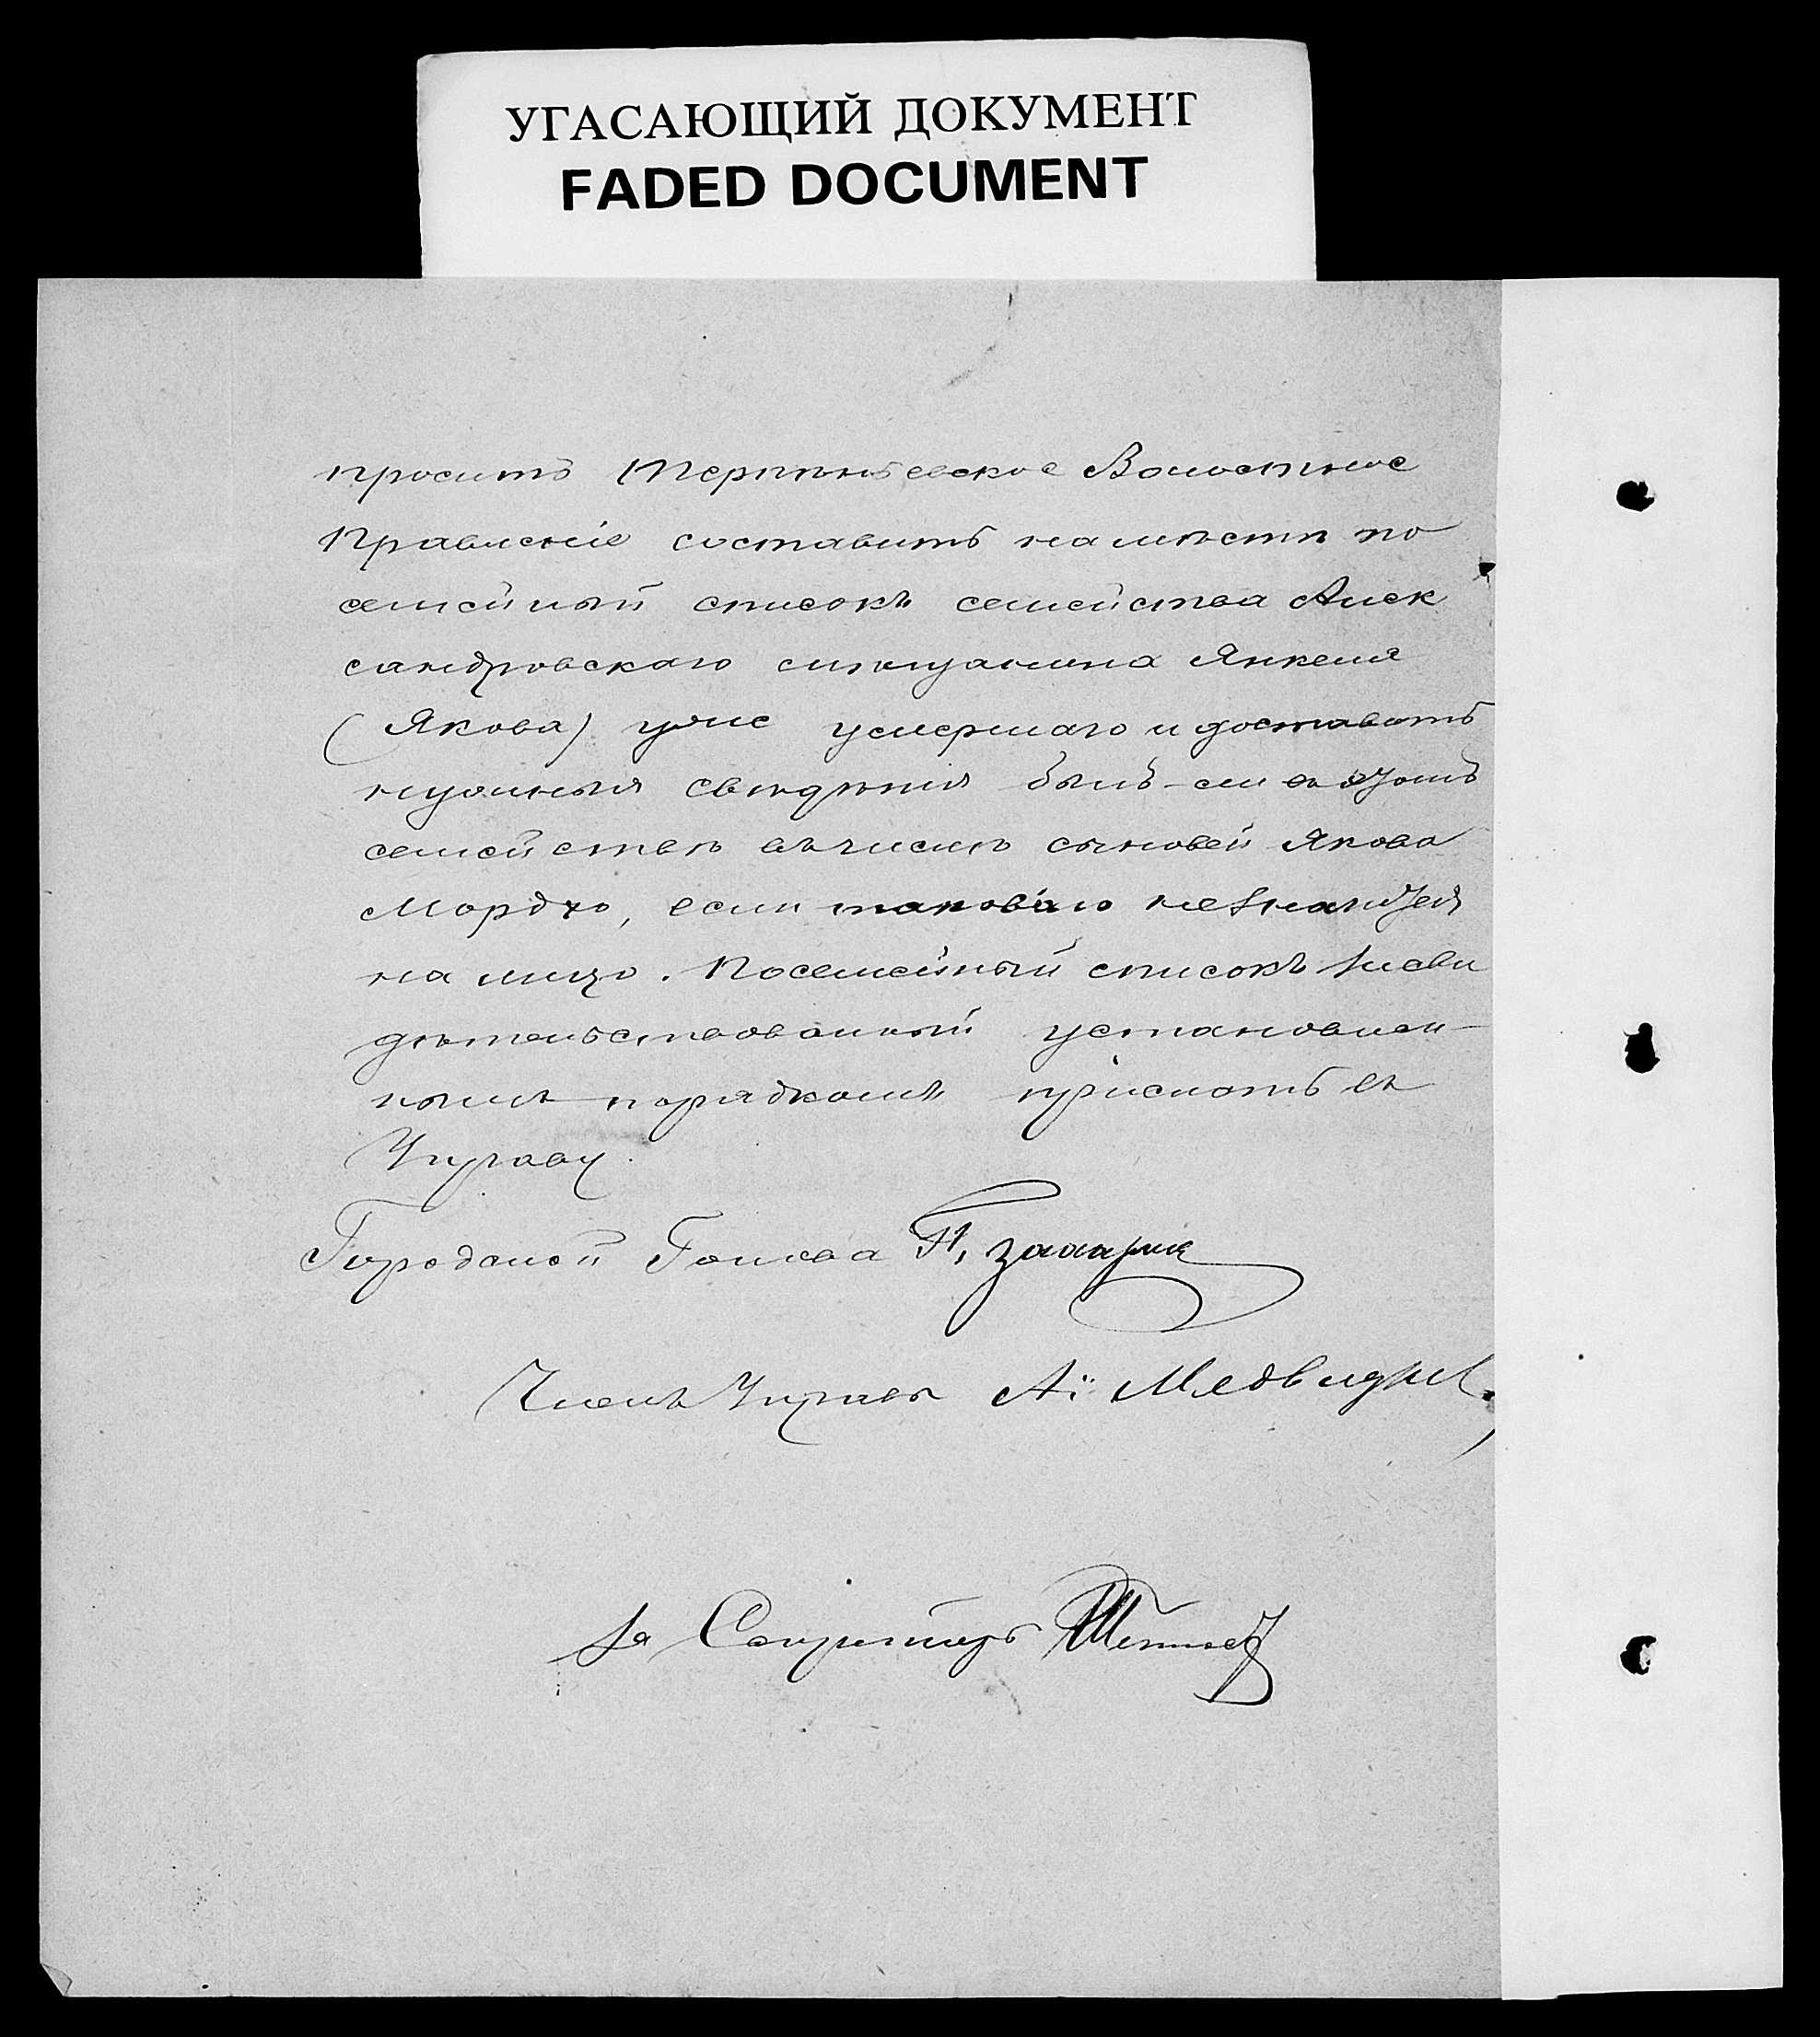 УГАСАЮЩИЙ ДОКУМЕНТ
FADED DOCUMENT
проситъ Терпеньевское Волостное
Правленіе составить на мѣстѣ по
семейный списокъ семейства Алек
сандровскаго мѣщанина Янкеля
(Якова) уже умершаго и доставить
нужныя свѣдѣнія былъ-ли въ этомъ
семействѣ въ числѣ сыновей Якова
Мордхо, если таковаго не
на лицо. Посемейный списокъ засви
дѣтельствованный установлен-
нымъ порядкомъ прислать въ
Управу.
Городской Голова
Членъ Управы А. Медвѣдев
За Секретаря